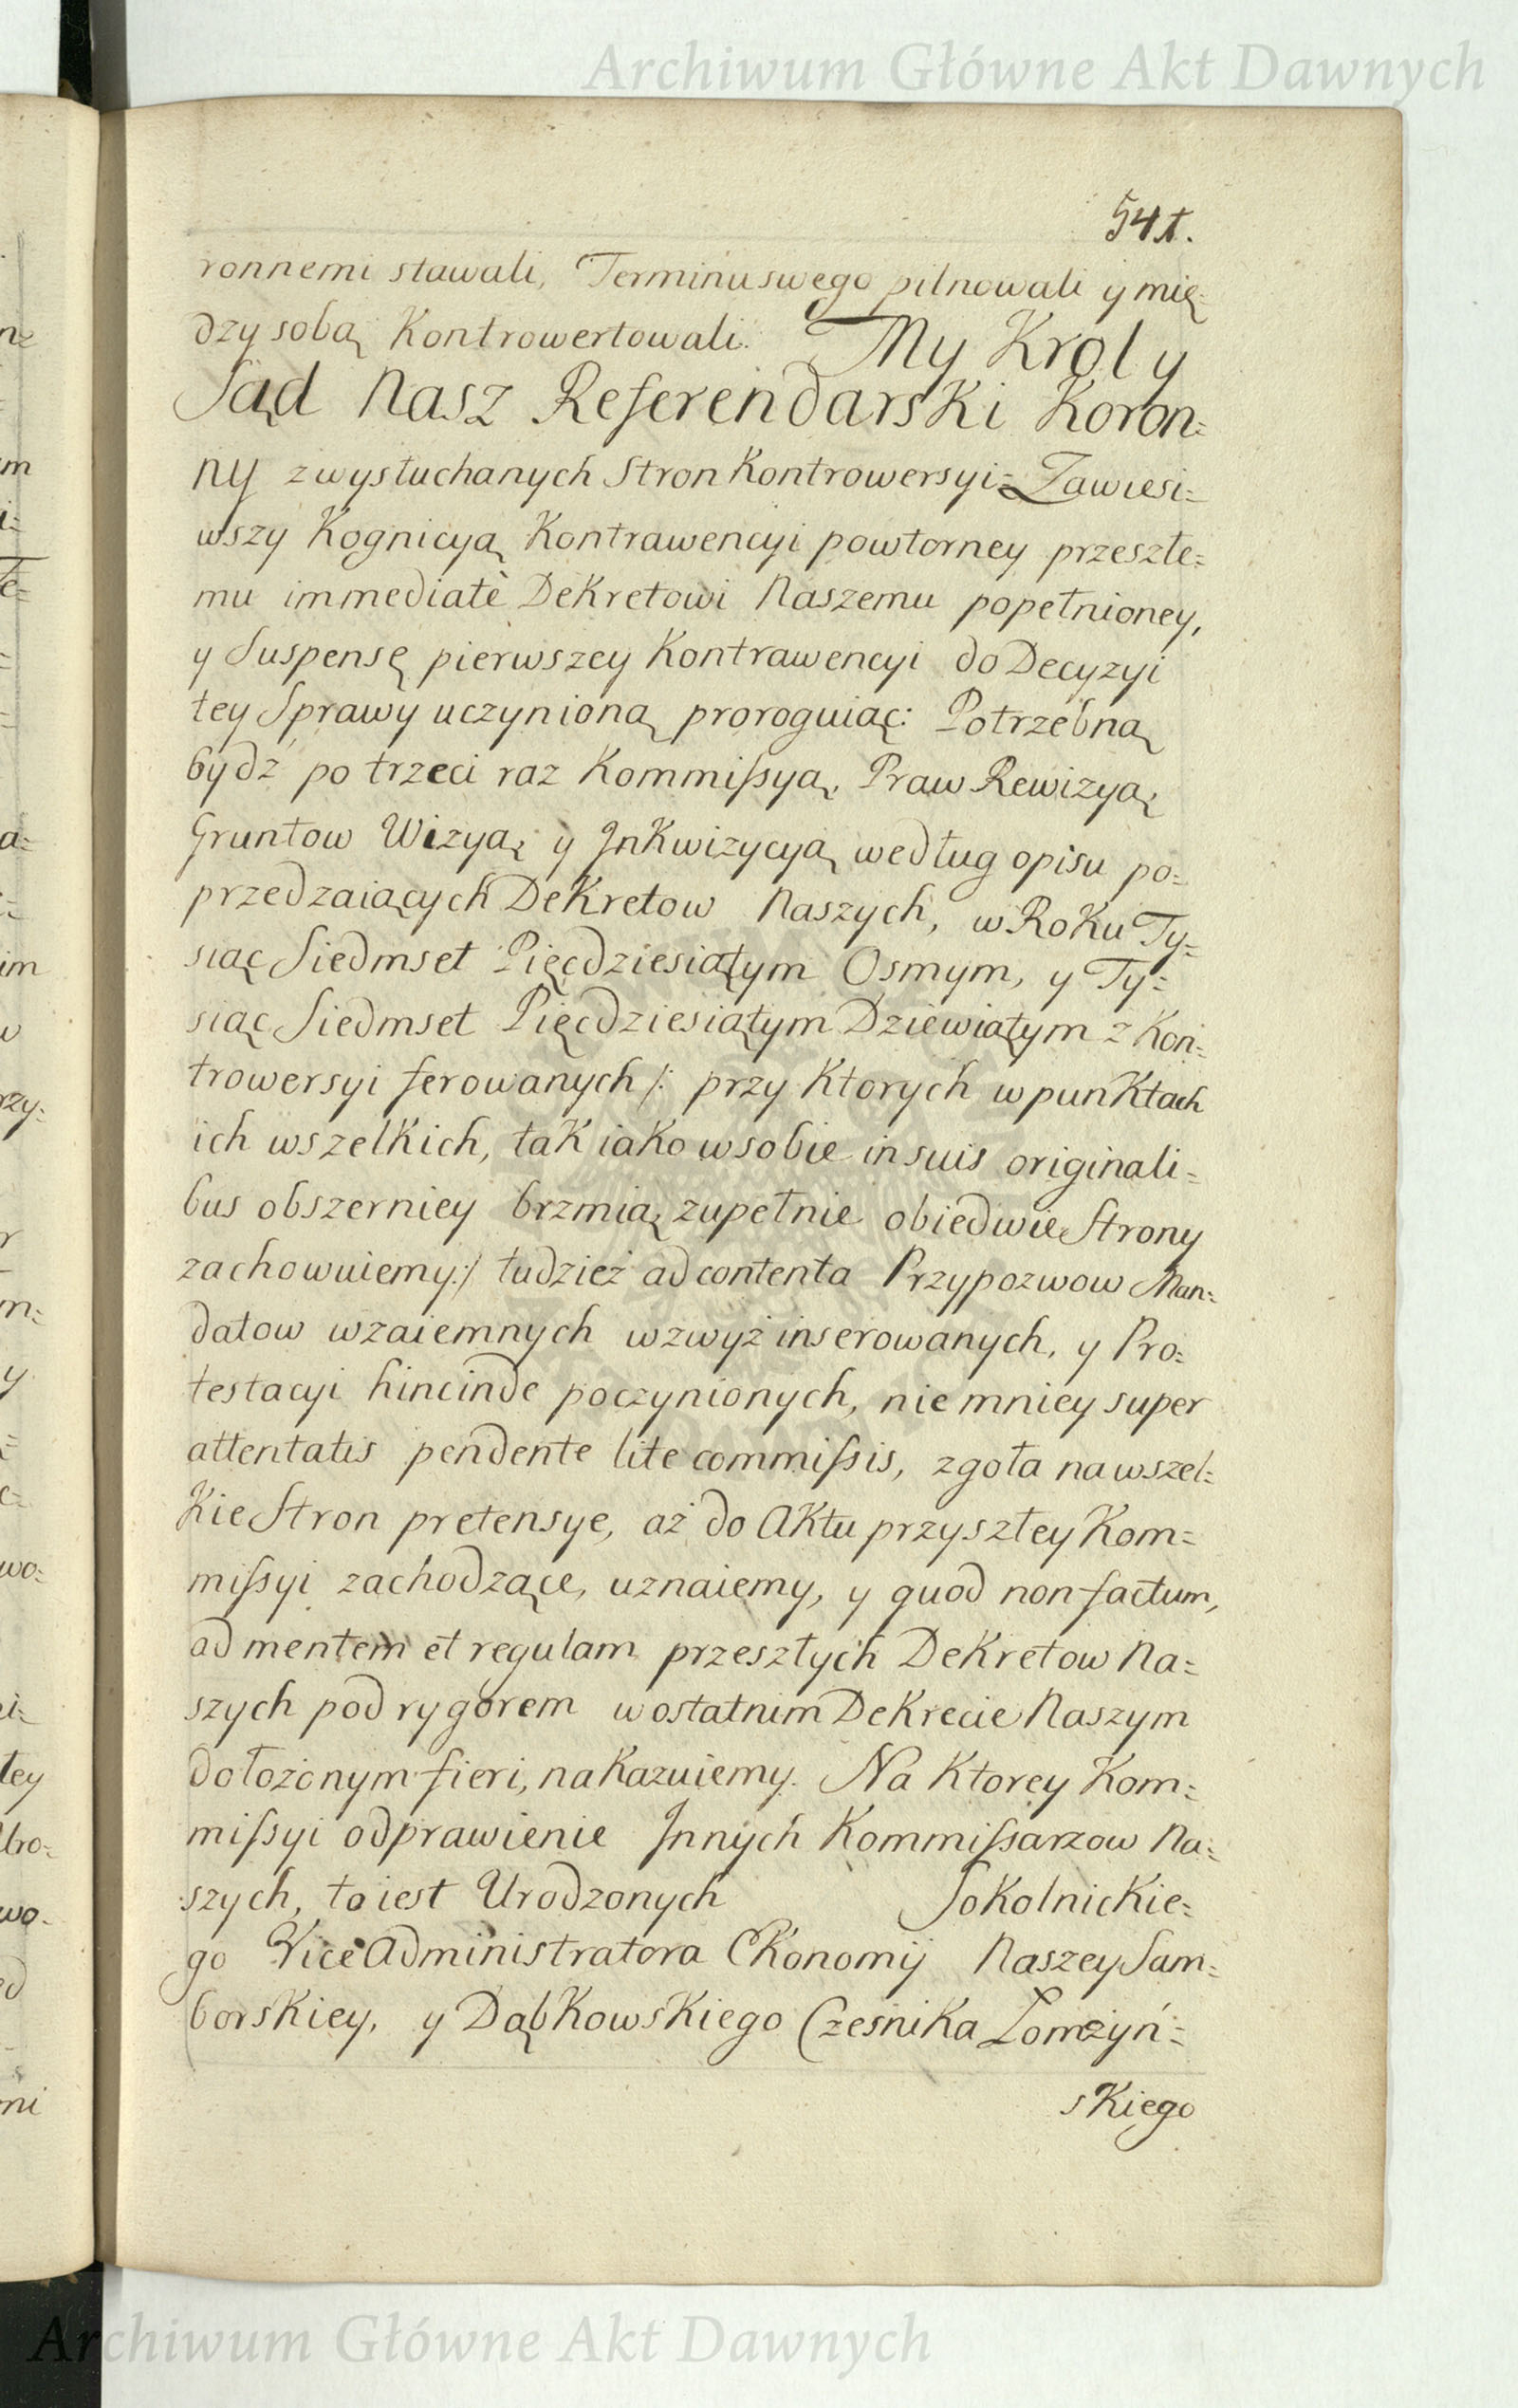 Archiwum Główne Akt Dawnych
541.
ronnemi stawali, Terminu swego pilnowali y mię=
dzy sobą Kontrowertowali. My Krol y
Sąd Nasz Referendarski Koron=
ny z wysłuchanych Stron Kontrowersyi= Zawiesi=
wszy Kognicyą Kontrawencyi powtorney przeszłe=
mu immediatè Dekretowi Naszemu popełnioney,
y Suspensę pierwszey Kontrawencyi do Decyzyi
tey Sprawy uczynioną proroguiąc: Potrzebną
bydź po trzeci raz Kommissyą, Praw Rewizyą,
Gruntow Wizyą, y Jnkwizycyą według opisu po=
przedzaiących Dekretow Naszych, w Roku Ty=
siąc Siedmset Pięcdziesiątym Osmym, y Ty=
siąc Siedmset Pięcdziesiątym Dziewiątym z Kon=
trowersyi ferowanych /: przy Ktorych w punktach
ich wszelkich, tak iako w sobie in suis originali=
bus obszerniey brzmią, zupełnie obiedwie Strony
zachowuiemy :/ tudzież ad contenta Przypozwow Man=
datow wzaiemnych wzwyż inserowanych, y Pro=
testacyi hincinde poczynionych, nie mniey super
attentatis pendente lite commissis, zgoła na wszel=
kie Stron pretensye, aż do Aktu przyszłey Kom=
missyi zachodzące, uznaiemy, y quod non factum,
ad mentem et regulam przeszłych Dekretow Na=
szych pod rygorem w ostatnim Dekrecie Naszym
dołożonym fieri, nakazuiemy. Na Ktorey Kom=
missyi odprawienie Jnnych Kommissarzow Na=
szych, to iest Urodzonych Sokolnickie=
go Vice Administratora Ekonomij Naszey Sam=
borskiey, y Dąbkowskiego Czesnika Łomżyń=
skiego
Archiwum Główne Akt Dawnych